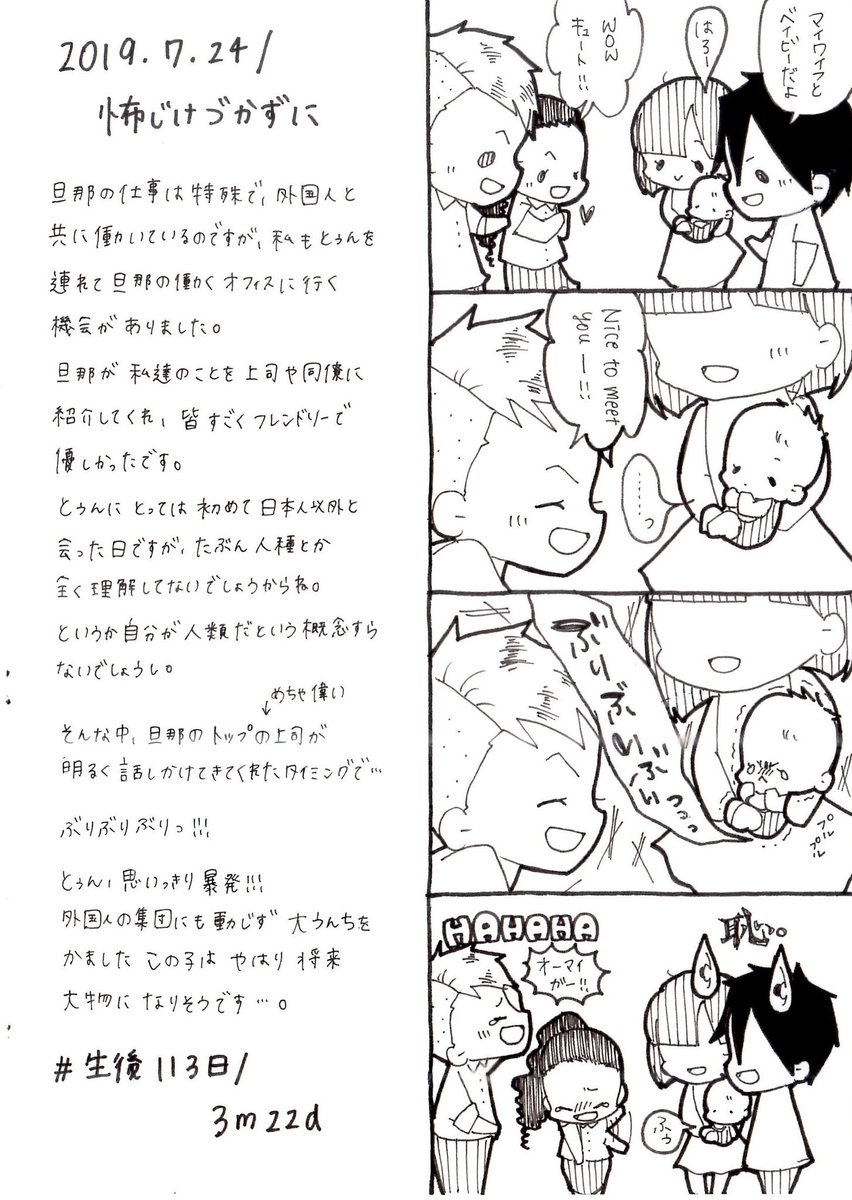 2019.7.24/
怖じけづかずに
旦那の仕事は特殊で、外国人と
共に働いているのですが、私もとぅんを
連れて旦那の働くオフィスに行く
機会がありました。
旦那が私達のことを上司や同僚に
紹介してくれ、皆すごくフレンドリーで
優しかったです。
とぅんにとっては初めて日本人以外と
会った日ですが、たぶん人種とか
全く理解してないでしょうからね。
というか自分が人類だという概念すら
ないでしょうし。
めちゃ偉い
↓
そんな中、旦那のトップの上司が
明るく話しかけてきてくれたタイミングで…
ぶりぶりぶりっ!!!
とぅん、思いっきり暴発!!!
外国人の集団にも動じず大うんちを
かました この子は やはり 将来
大物に なりそうです…。
#生後113日/
3m22d
マイワイフと
ベイビーだよ
はろー
WOW
キュート!!
Nice to meet
you ー!!
……っ
ぶりぶりぶりぶりっっっ
プル
プル
HAHAHA
オーマイ
がー!!
恥…
ふぅ